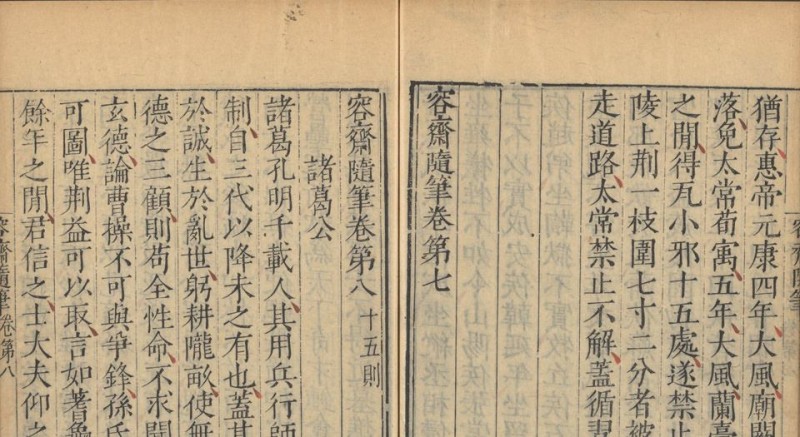 猶存惠帝元康四年大風廟闕
落免太常荀寓五年大風蘭臺
之間得瓦小邪十五處遂禁止
陵上荆一枝圍七寸二分者被
走道路太常禁止不解蓋循習
容齋隨筆卷第七
容齋隨筆卷第八 十五則
諸葛公
諸葛孔明千載人其用兵行師
制自三代以降未之有也蓋其
於誠生於亂世躬耕隴畝使無
德之三顧則苟全性命不求聞
玄德論曹操不可與爭鋒孫氏
可圖唯荆益可以取言如蓍龜
餘年之間君信之士大夫仰之
容齋隨筆 卷第八
容齋隨筆